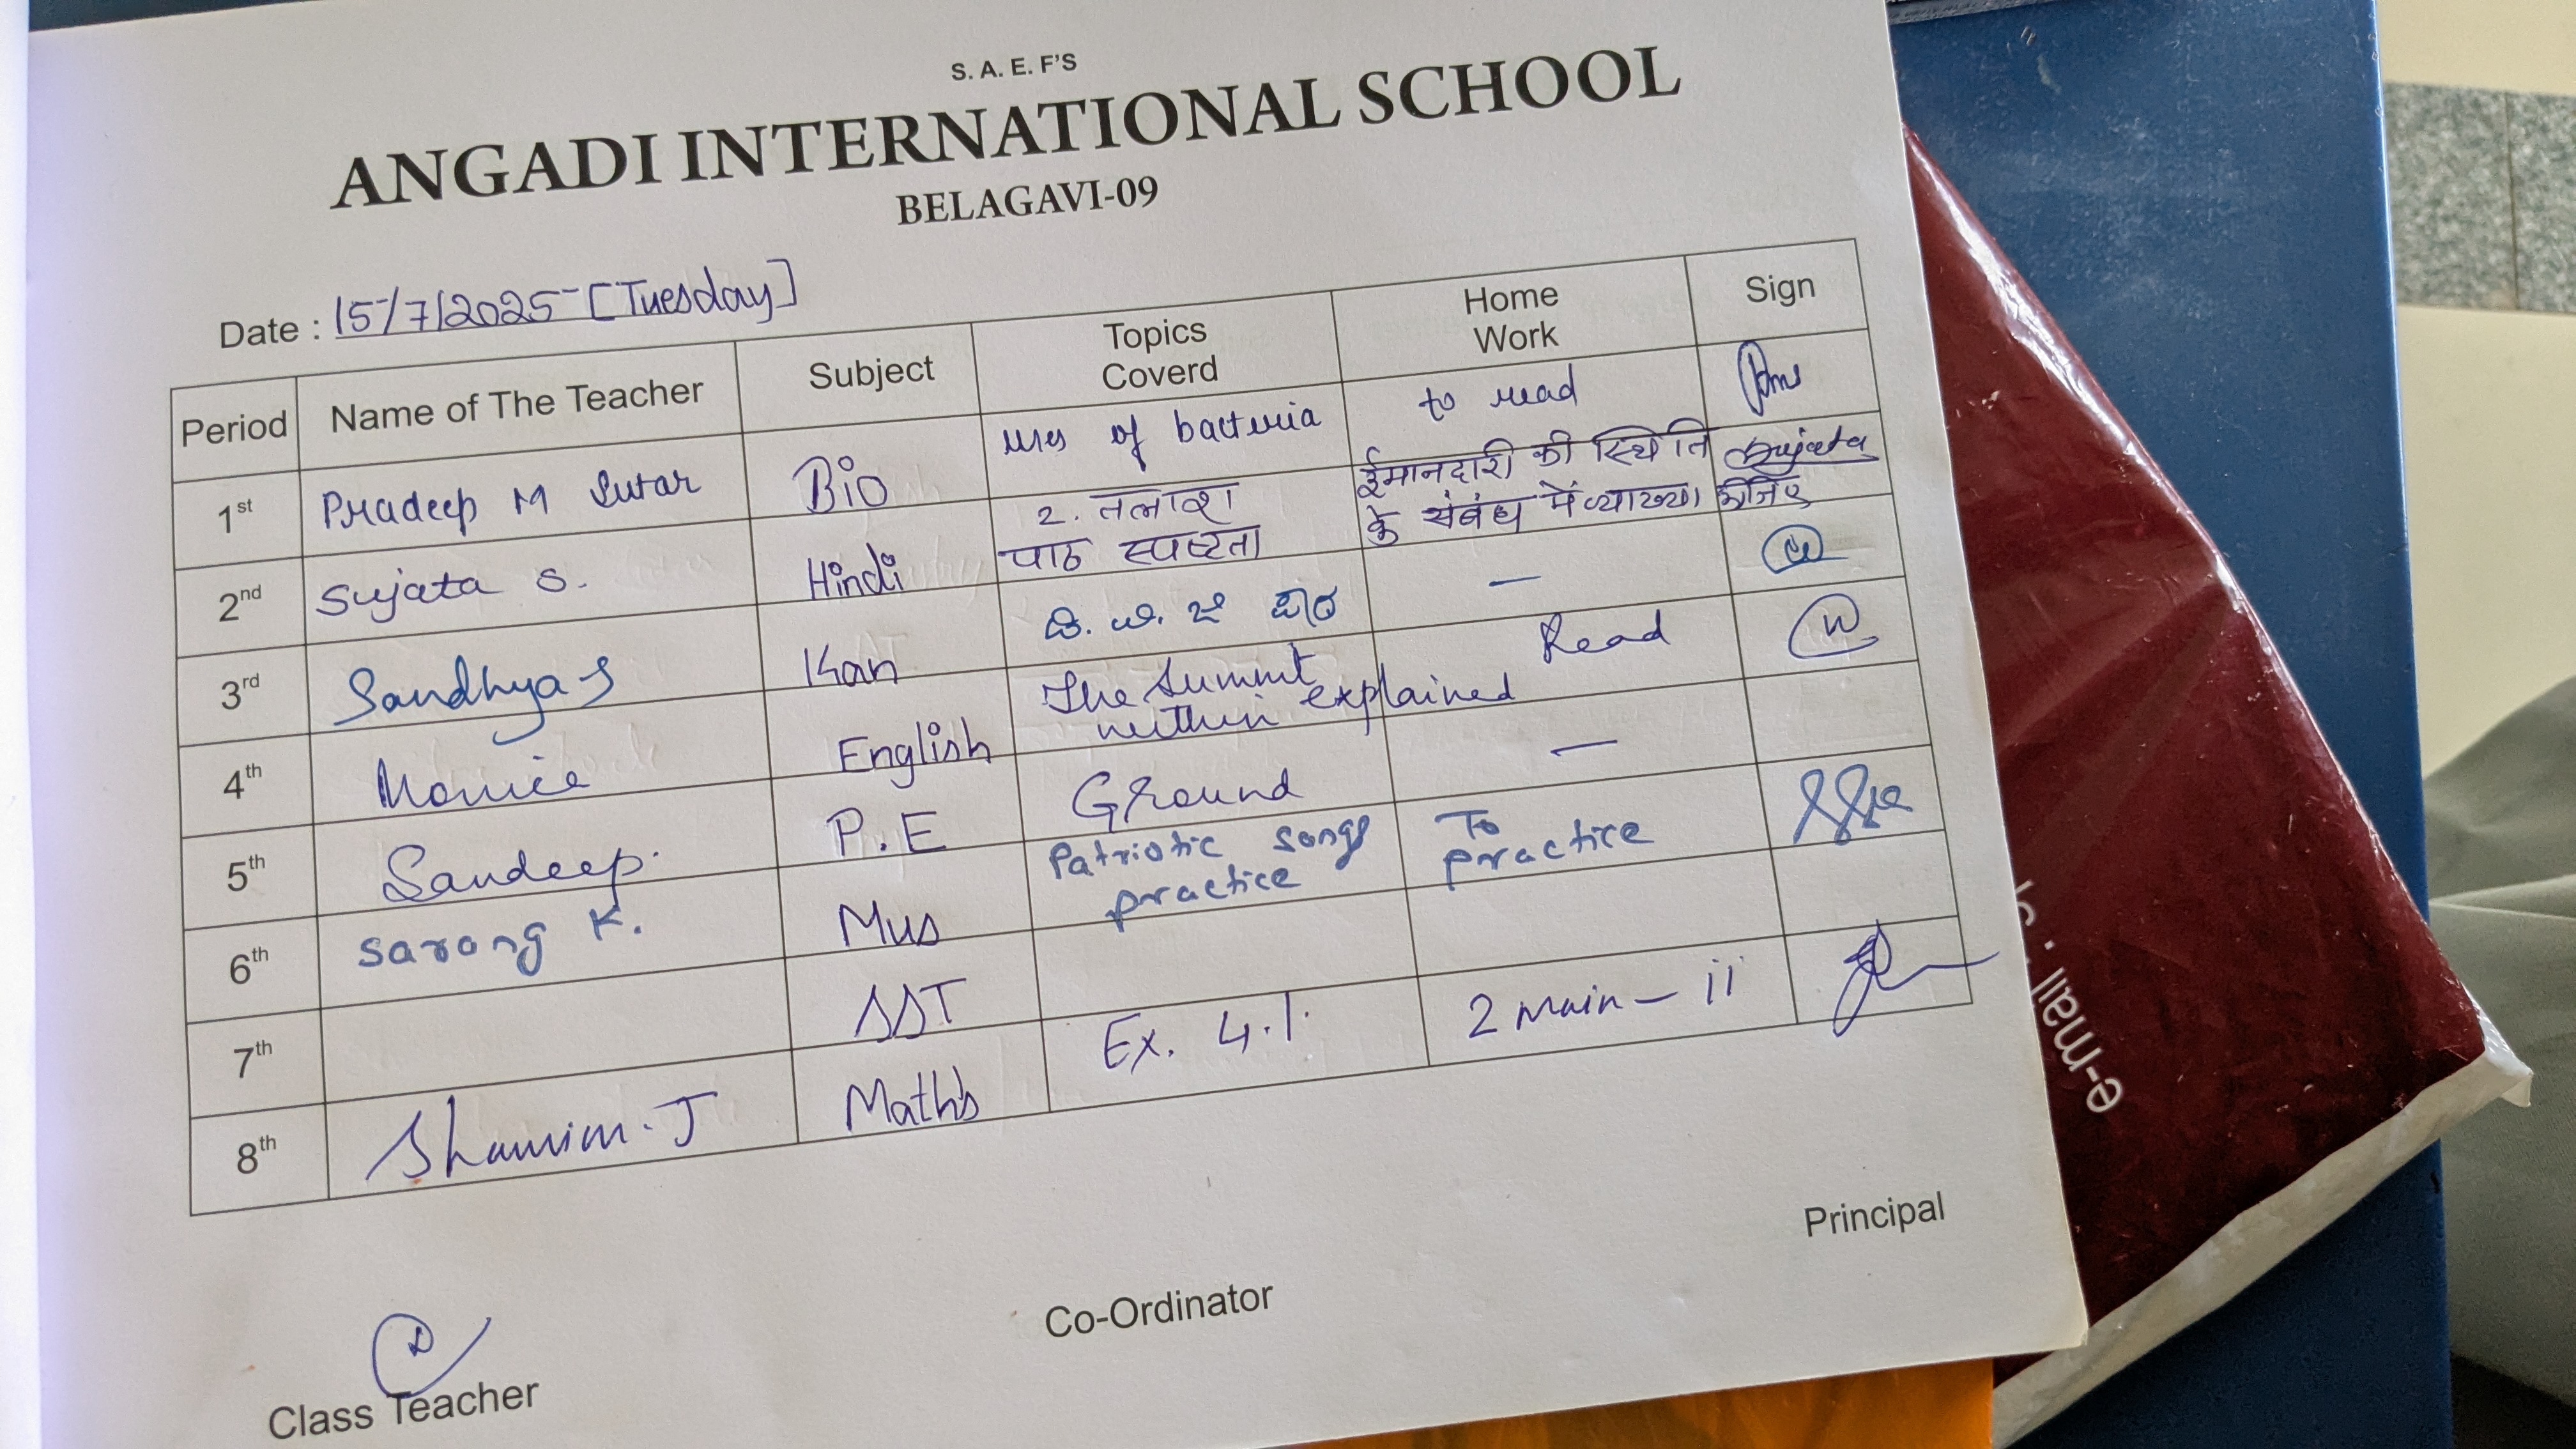 S. A. E. F'S
ANGADI INTERNATIONAL SCHOOL
BELAGAVI-09
Date : 15/7/2025 [Tuesday]
Period Name of The Teacher Subject Topics Coverd Home Work Sign
1st Pradeep M Sutar Bio uses of bacteria to read
2nd Sujata S. Hindi 2. तलाश ईमानदारी की स्थिति Sujata
पाठ स्पष्टता के संबंध में व्याख्या कीजिए
3rd Sandhya S Kan —
4th English The Summit Read
within explained
5th Sandeep. P.E Ground —
6th Sarang K. Mus Patriotic songs To
practice practice
7th SST
8th Shamim. J Maths Ex. 4.1. 2 main – ii
Principal
Co-Ordinator
Class Teacher
e-mail :